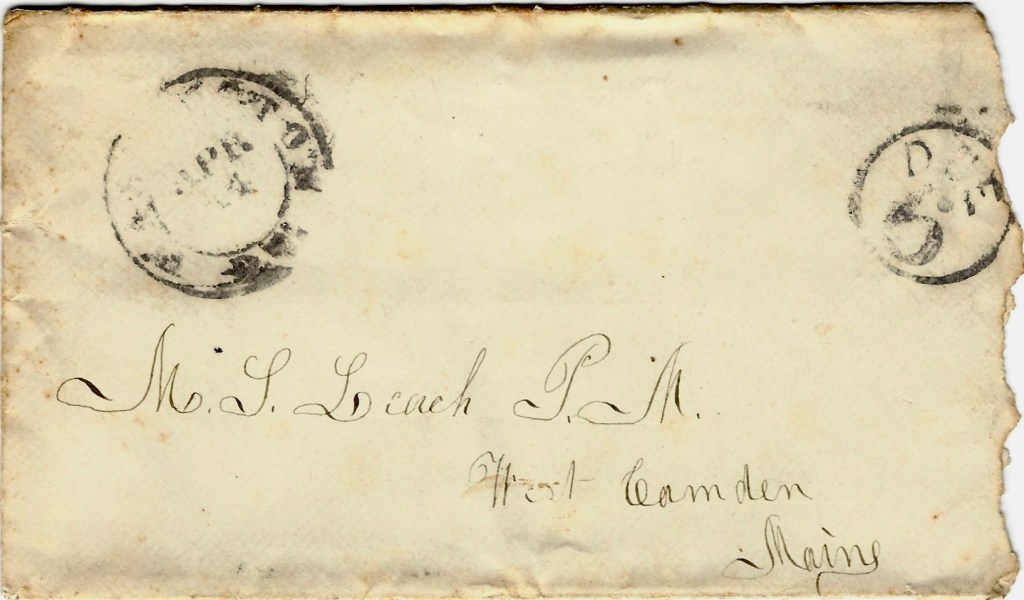 APR
14
M. S. Leach P. M.
West Camden
Maine